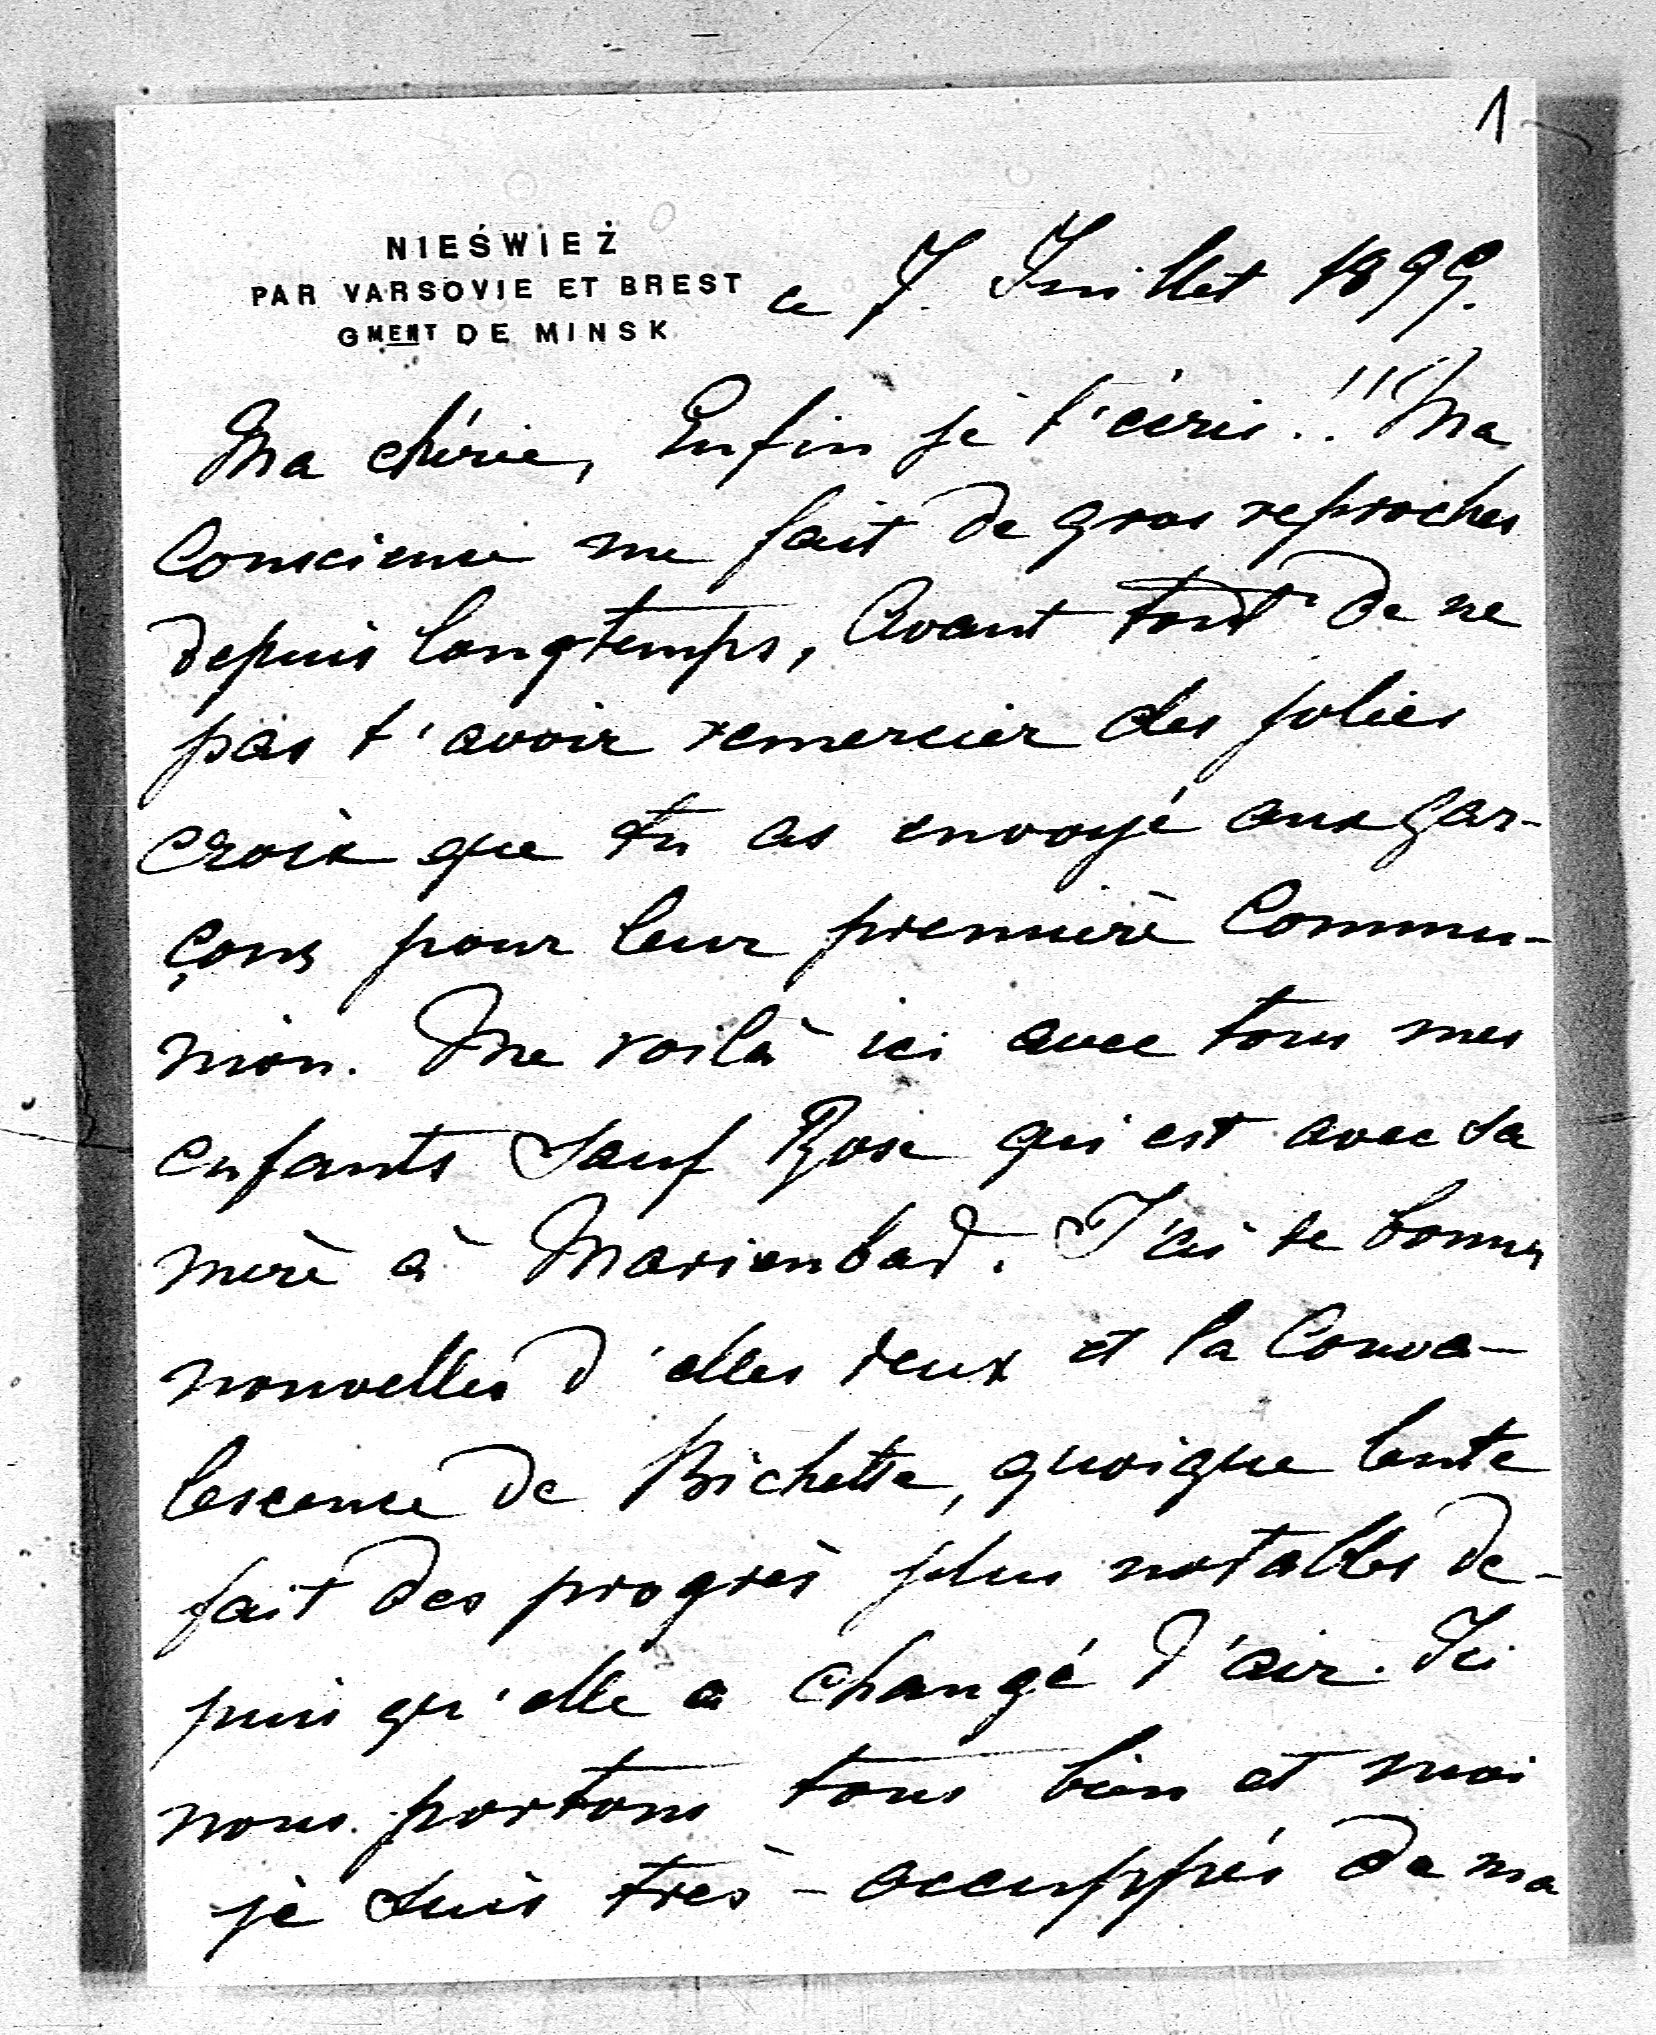 1
NIEŚWIEŻ
PAR VARSOVIE ET BREST
GMENT DE MINSK
ce 7. Juillet 1899.
Ma chérie, Enfin je t'écris!! Ma
Conscience me fait de gros reproches
depuis longtemps, Avant tout de ne
pas t'avoir remercier des jolies
croix que tu as envoyé aux gar-
çons pour leur première Commu-
nion. Me voilà ici avec tous mes
enfants sauf Rose qui est avec sa
mère à Marienbad. J'ai de bonnes
nouvelles d'elles deux et la Conva-
lescence de Bichette, quoique lente
fait des progrès plus notables de-
puis qu'elle a changé d'air. Ici
nous portons tous bien et moi
je suis très-occuppés de ma